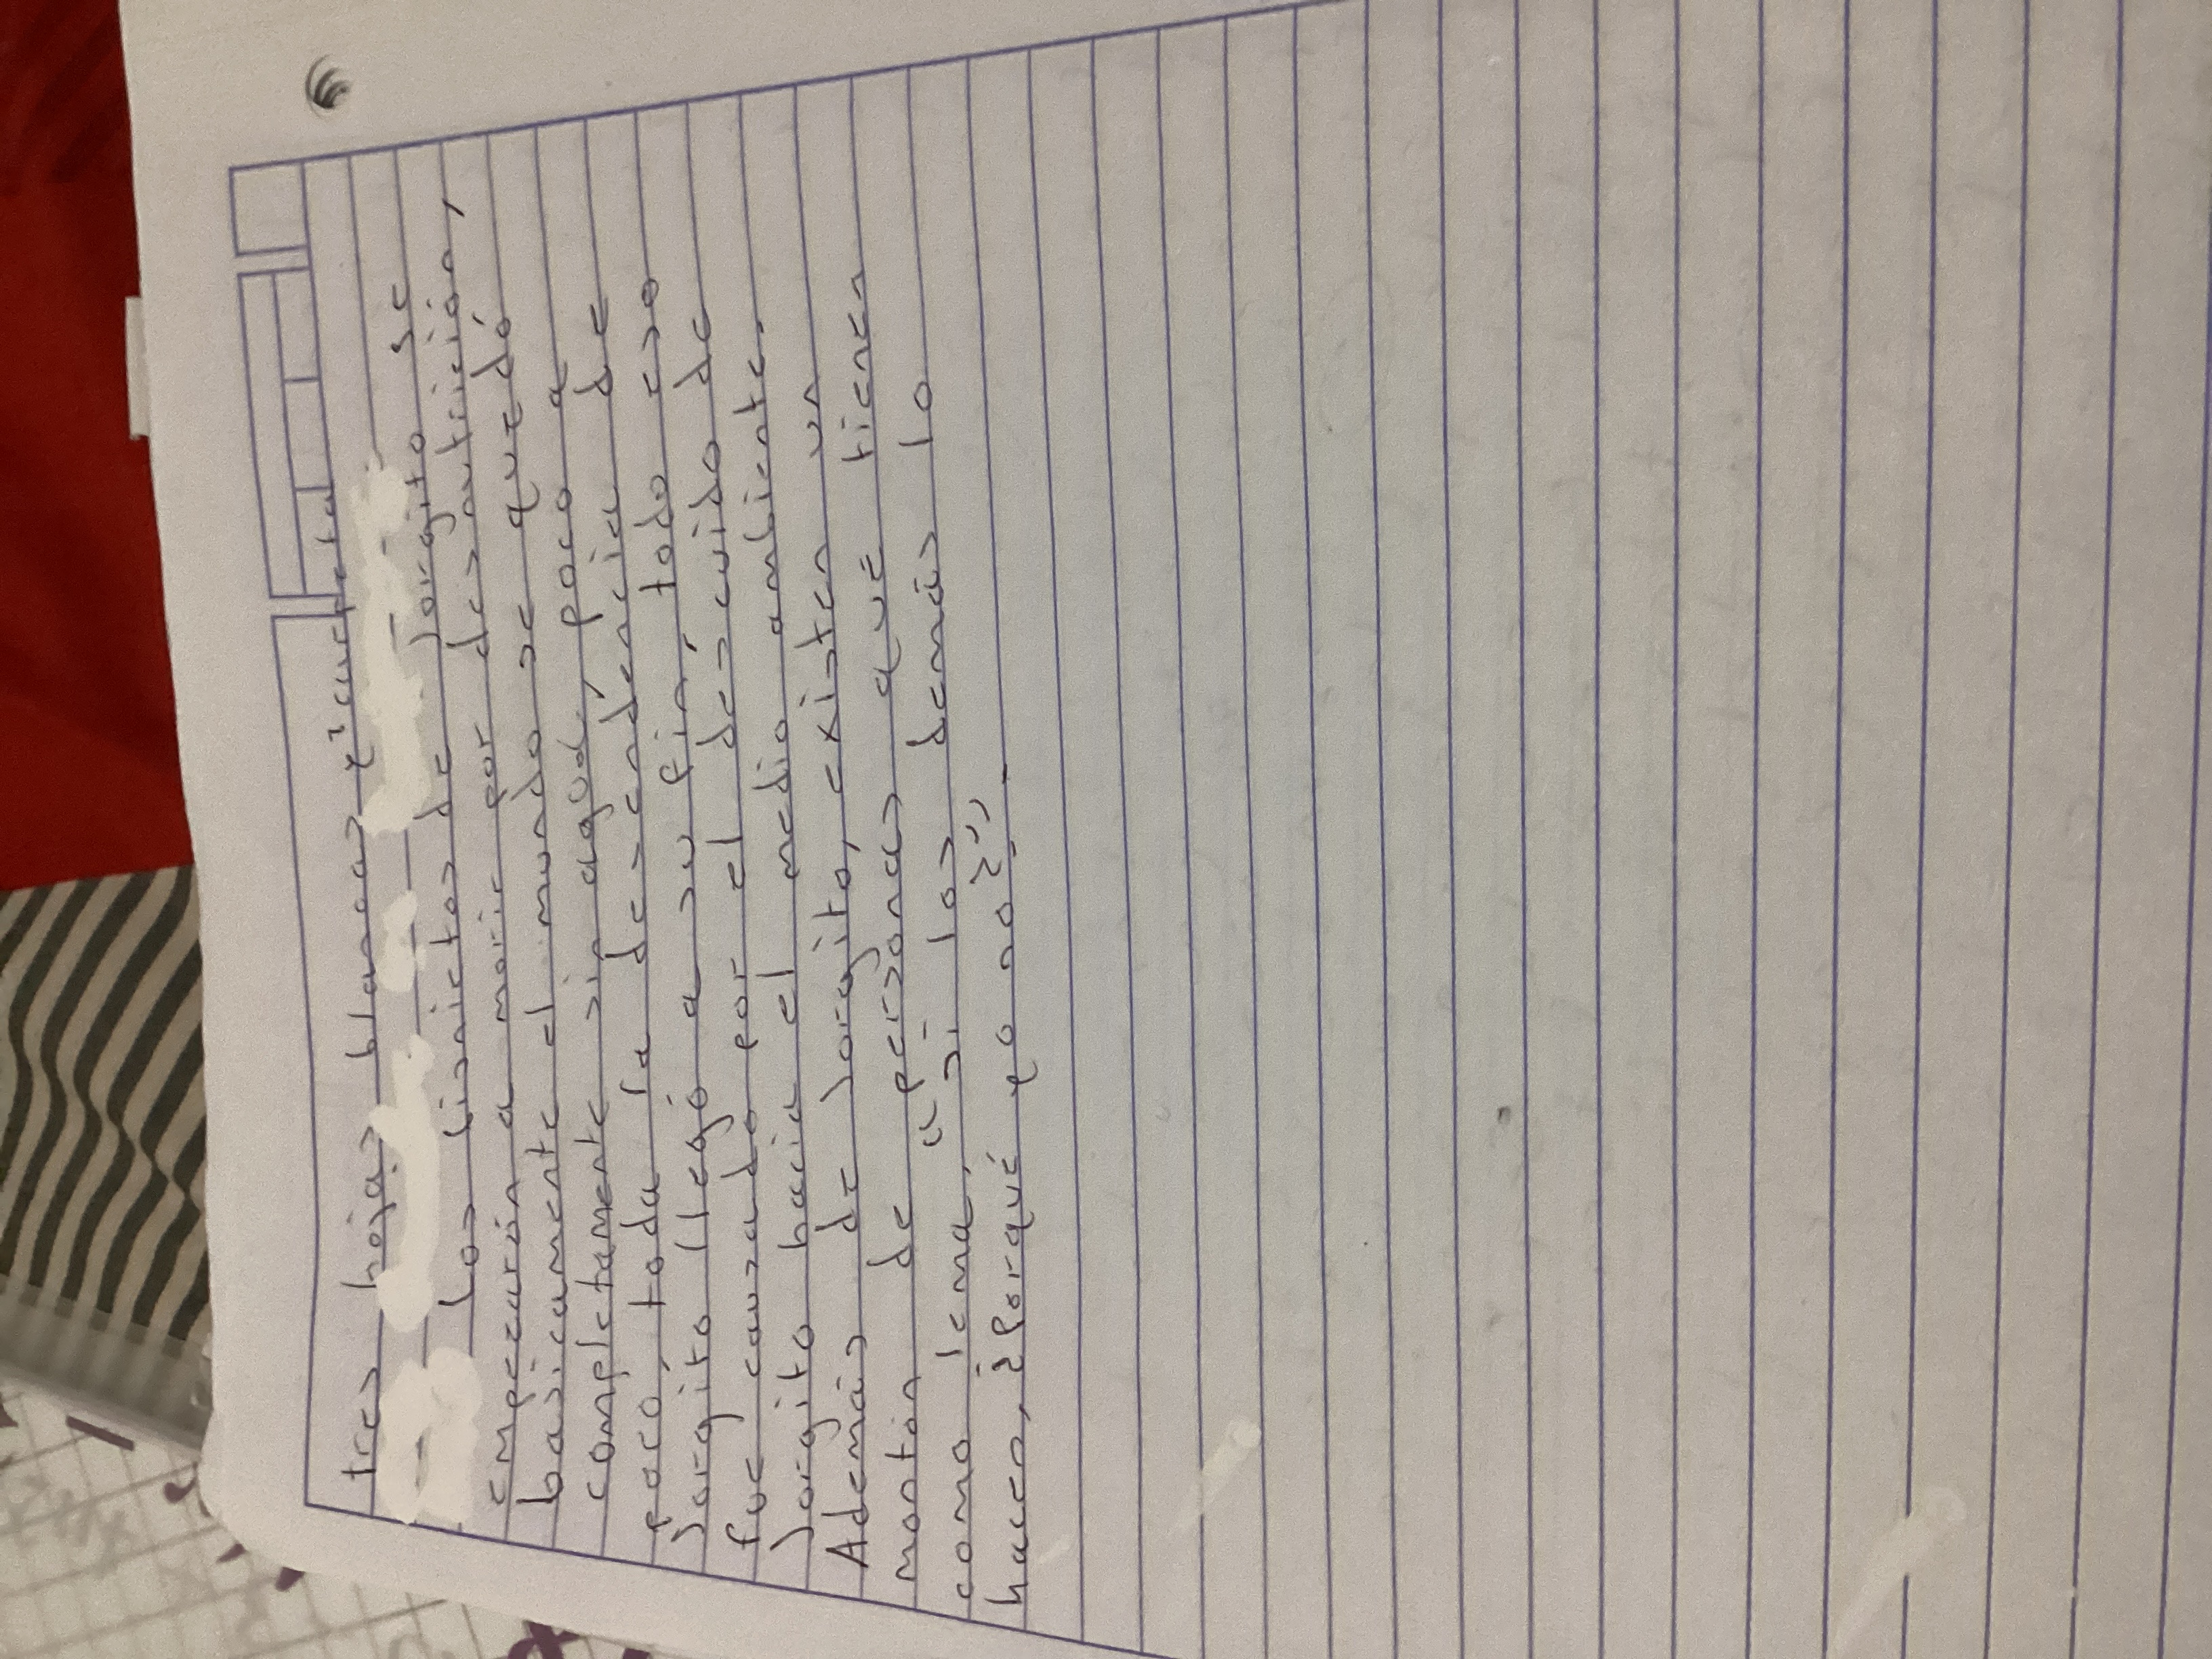 tres hojas blancas y carpeta
los bisnietos de Jorgito se
empezarón a morir por desnutrición,
basicamente el mundo se quedó
completamente sin agua, poco a
poco, toda la descendencia de
Jorgito llegó a su fin, todo eso
fue causado por el descuido de
Jorgito hacia el medio ambiente.
Además de Jorgito, existen un
montón de personas que tienen
como lema, "si los demás lo
hacen, ¿Porqué yo no?".